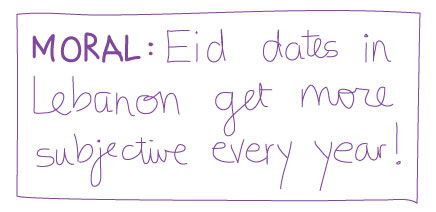 MORAL: Eid dates in
Lebanon get more
subjective every year!